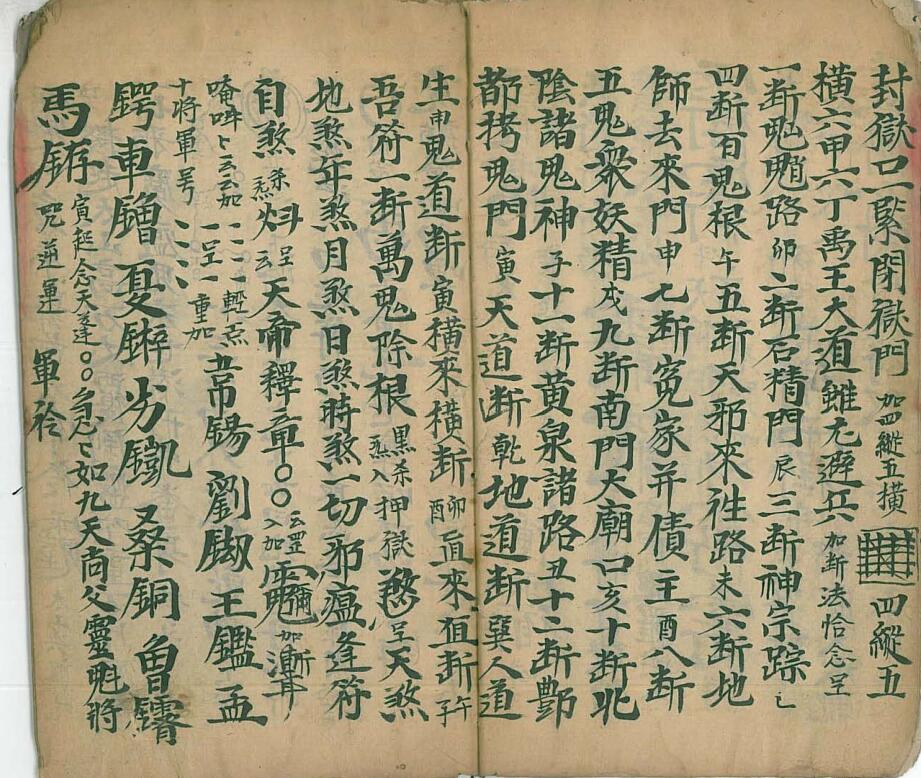 封獄口一緊閉獄門 加四縱五橫 四縱五
橫六甲六丁禹王大道雖兀避兵 加斷法恰念呈
一斷鬼路 卯 二斷石精門 辰 三斷神宗踪 巳
四斷百鬼根 午 五斷天邪來往路 未 六斷地
師去來門 申 七斷冤家并債主 酉 八斷
五鬼衆妖精 戌 九斷南門大廟口 亥 十斷北
陰諸鬼神 子 十一斷黃泉諸路 丑 十二斷酆
都拷鬼門 寅 天道斷 乾 地道斷 巽 人道
生 申 鬼道斷 寅 橫來橫斷 卯酉 直來直斷 午子
吾符一斷萬鬼除根 黑杀 入 押獄 呈 天煞
地煞年煞月煞日煞時煞一切邪瘟逢符
自煞 杀 呈云 天帝釋章〇〇 云罡入加 加漸耳
唵 云云加 一一一 輕点
十將軍号 一呈一 重加 劉 王鑑孟
鍔車 夏 劣 桑銅魯
馬 寅起念天逢〇〇急急如九天尚父靈魁將
咒逆運 軍